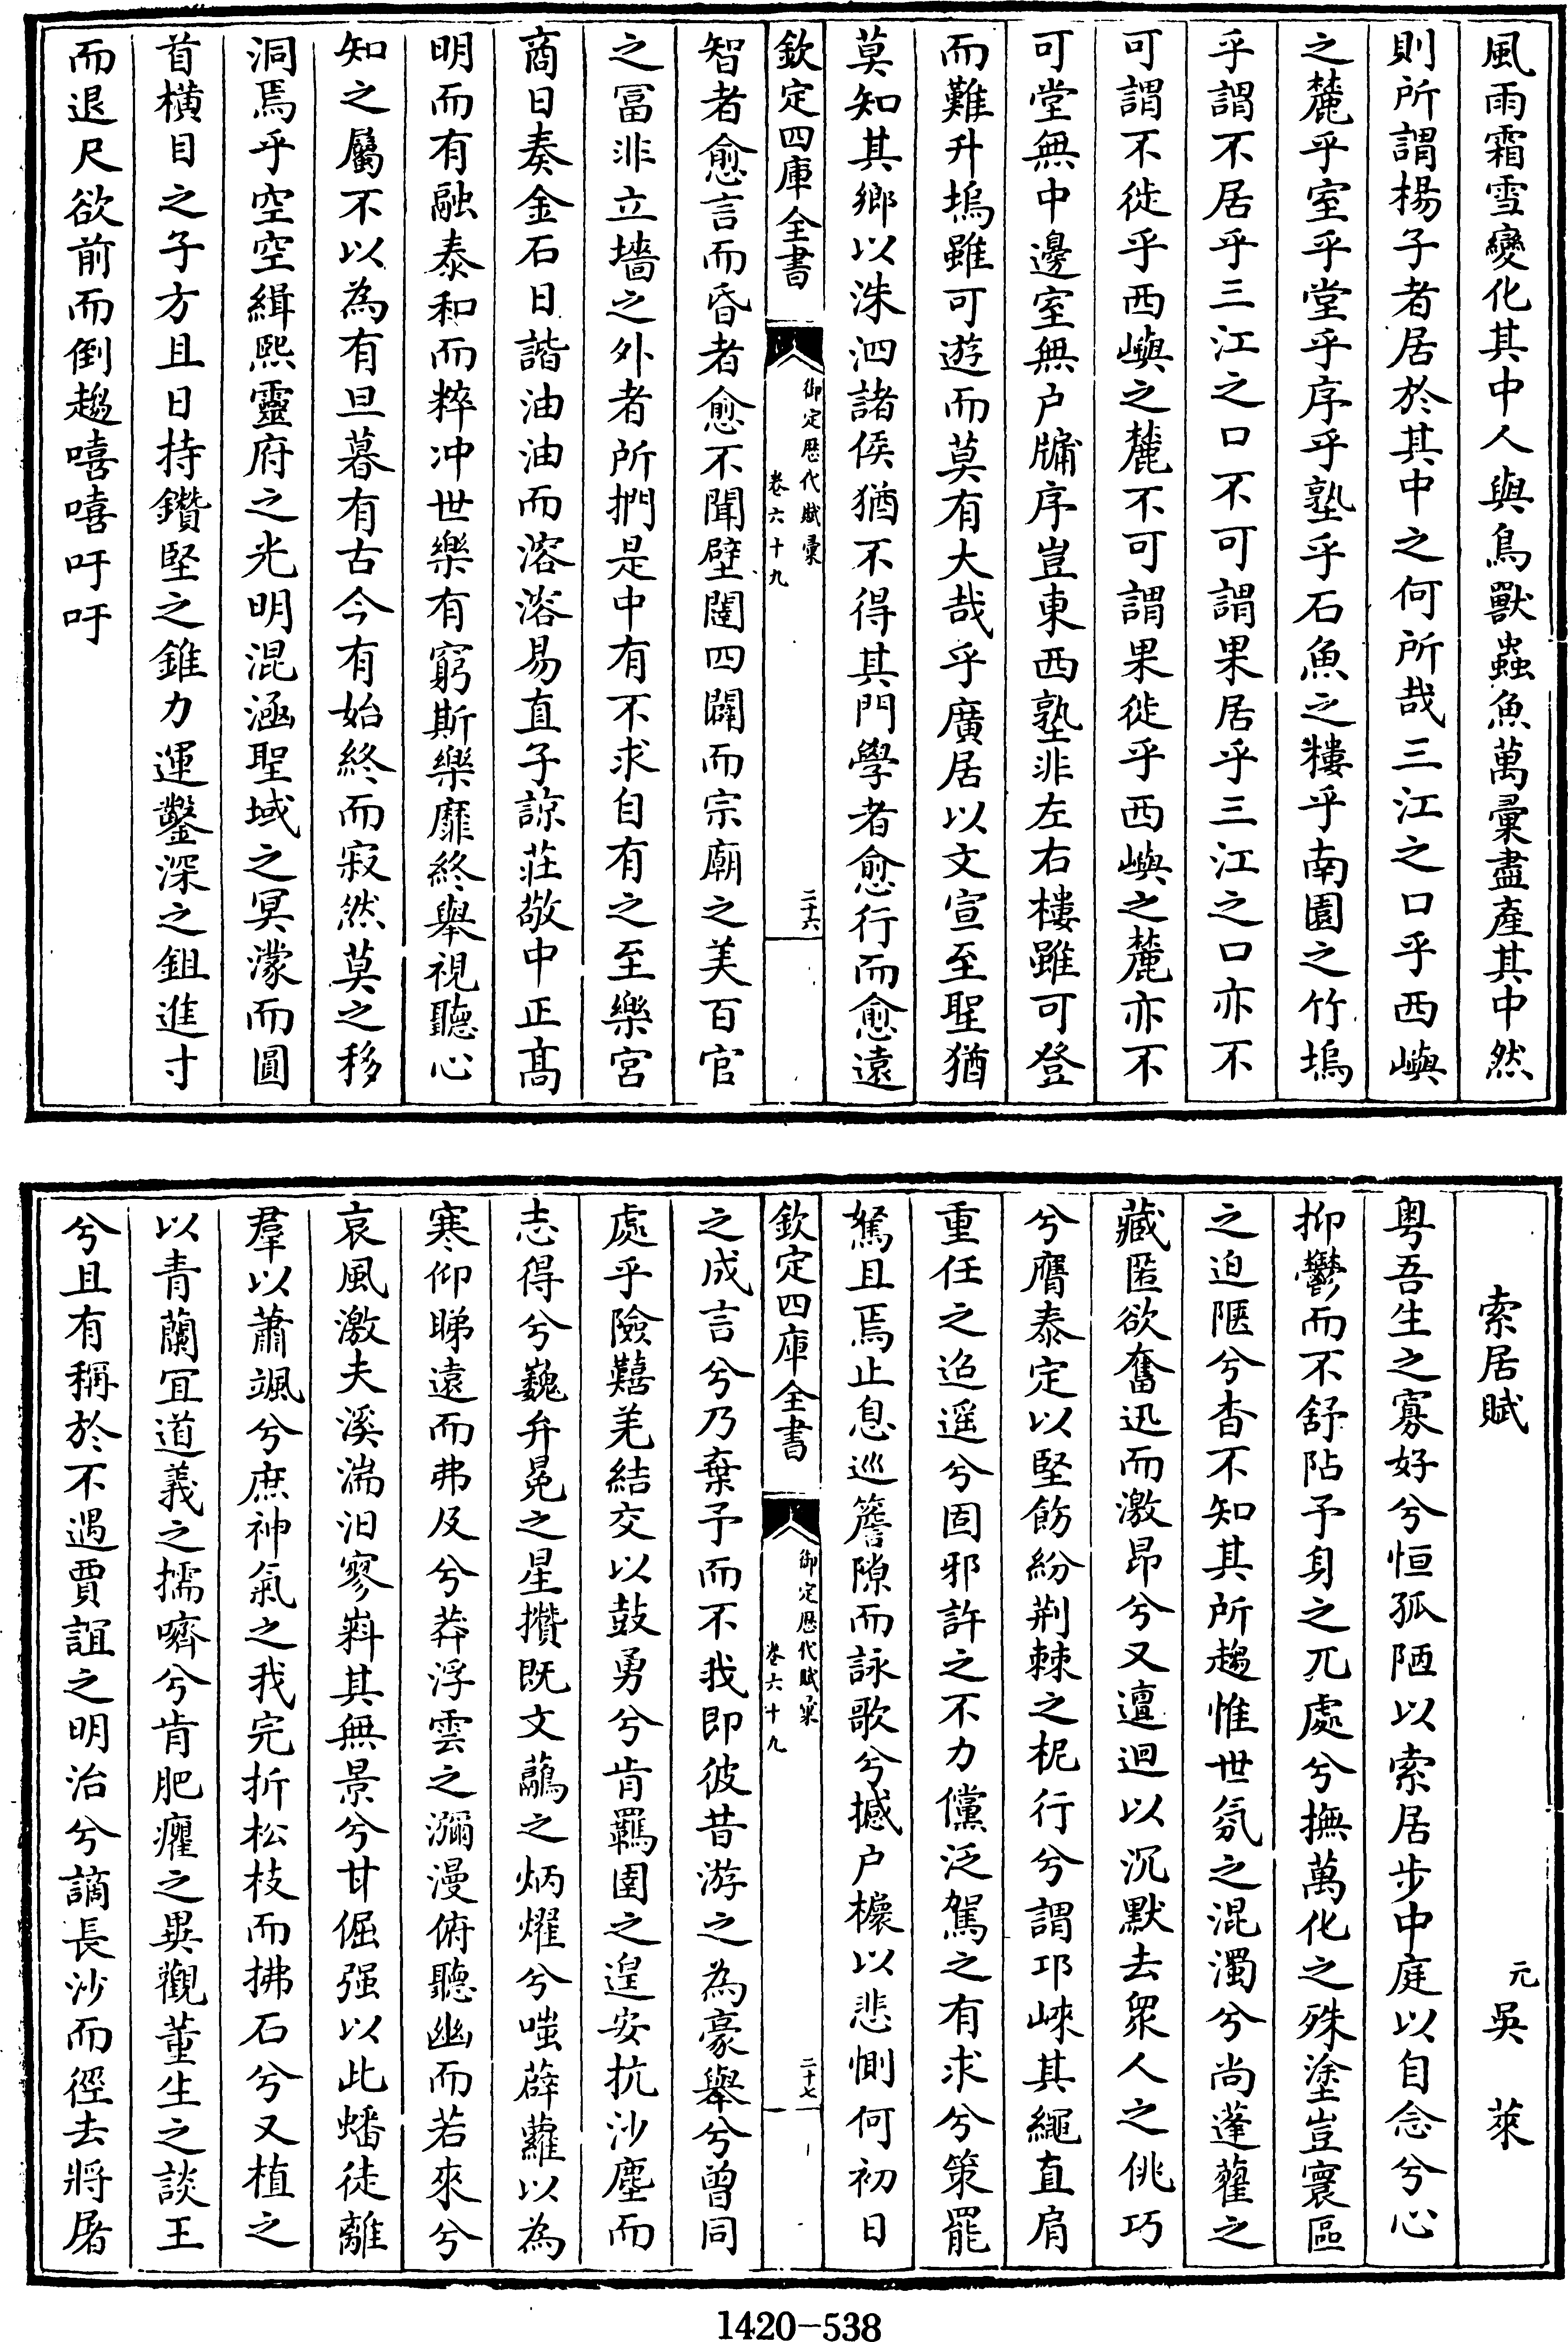 風雨霜雪變化其中人與鳥獸蟲魚萬彚盡產其中然
則所謂楊子者居於其中之何所哉三江之口乎西嶼
之麓乎室乎堂乎序乎塾乎石魚之樓乎南園之竹塢
乎謂不居乎三江之口不可謂果居乎三江之口亦不
可謂不徙乎西嶼之麓不可謂果徙乎西嶼之麓亦不
可堂無中邊室無户牖序豈東西塾非左右樓雖可登
而難升塢雖可遊而莫有大哉乎廣居以文宣至聖猶
莫知其鄉以洙泗諸侯猶不得其門學者愈行而愈遠
欽定四庫全書
御定歷代賦彙
卷六十九
二十六
智者愈言而昏者愈不聞壁闥四闢而宗廟之美百官
之冨非立墻之外者所捫是中有不求自有之至樂宮
商日奏金石日諧油油而溶溶易直子諒莊敬中正髙
明而有融泰和而粹冲世樂有窮斯樂靡終舉視聽心
知之屬不以為有旦暮有古今有始終而寂然莫之移
洞焉乎空空緝熙靈府之光明混涵聖域之冥濛而圓
首橫目之子方且日持鑽堅之錐力運鑿深之鉏進寸
而退尺欲前而倒趨嘻嘻吁吁
索居賦
元吳萊
粤吾生之寡好兮恒孤陋以索居步中庭以自念兮心
抑鬱而不舒阽予身之兀處兮撫萬化之殊塗豈寰區
之迫陋兮杳不知其所趨惟世氛之混濁兮尚蓬藋之
藏匿欲奮迅而激昂兮又邅迴以沉默去眾人之佻巧
兮膺泰定以堅飭紛荆棘之柅行兮謂邛崍其繩直肩
重任之迢遥兮固邪許之不力儻泛駕之有求兮策罷
駑且焉止息巡簷隙而詠歌兮撼户櫰以悲惻何初日
欽定四庫全書
御定歷代賦彙
卷六十九
二十七
之成言兮乃棄予而不我即彼昔游之為豪舉兮曾同
處乎險囏羌結交以鼓勇兮肯羈圉之遑安抗沙塵而
志得兮巍弁冕之星攢既文虉之炳燿兮嗤薜蘿以為
寒仰睇遠而弗及兮莽浮雲之瀰漫俯聽幽而若來兮
哀風激夫溪湍汩寥㪺其無景兮甘倔强以此蟠徒離
羣以蕭颯兮庶神氣之我完折松枝而拂石兮又植之
以青蘭冝道義之擩嚌兮肯肥癯之異觀董生之談王
兮且有稱於不遇賈誼之明治兮謫長沙而徑去將屠
1420-538